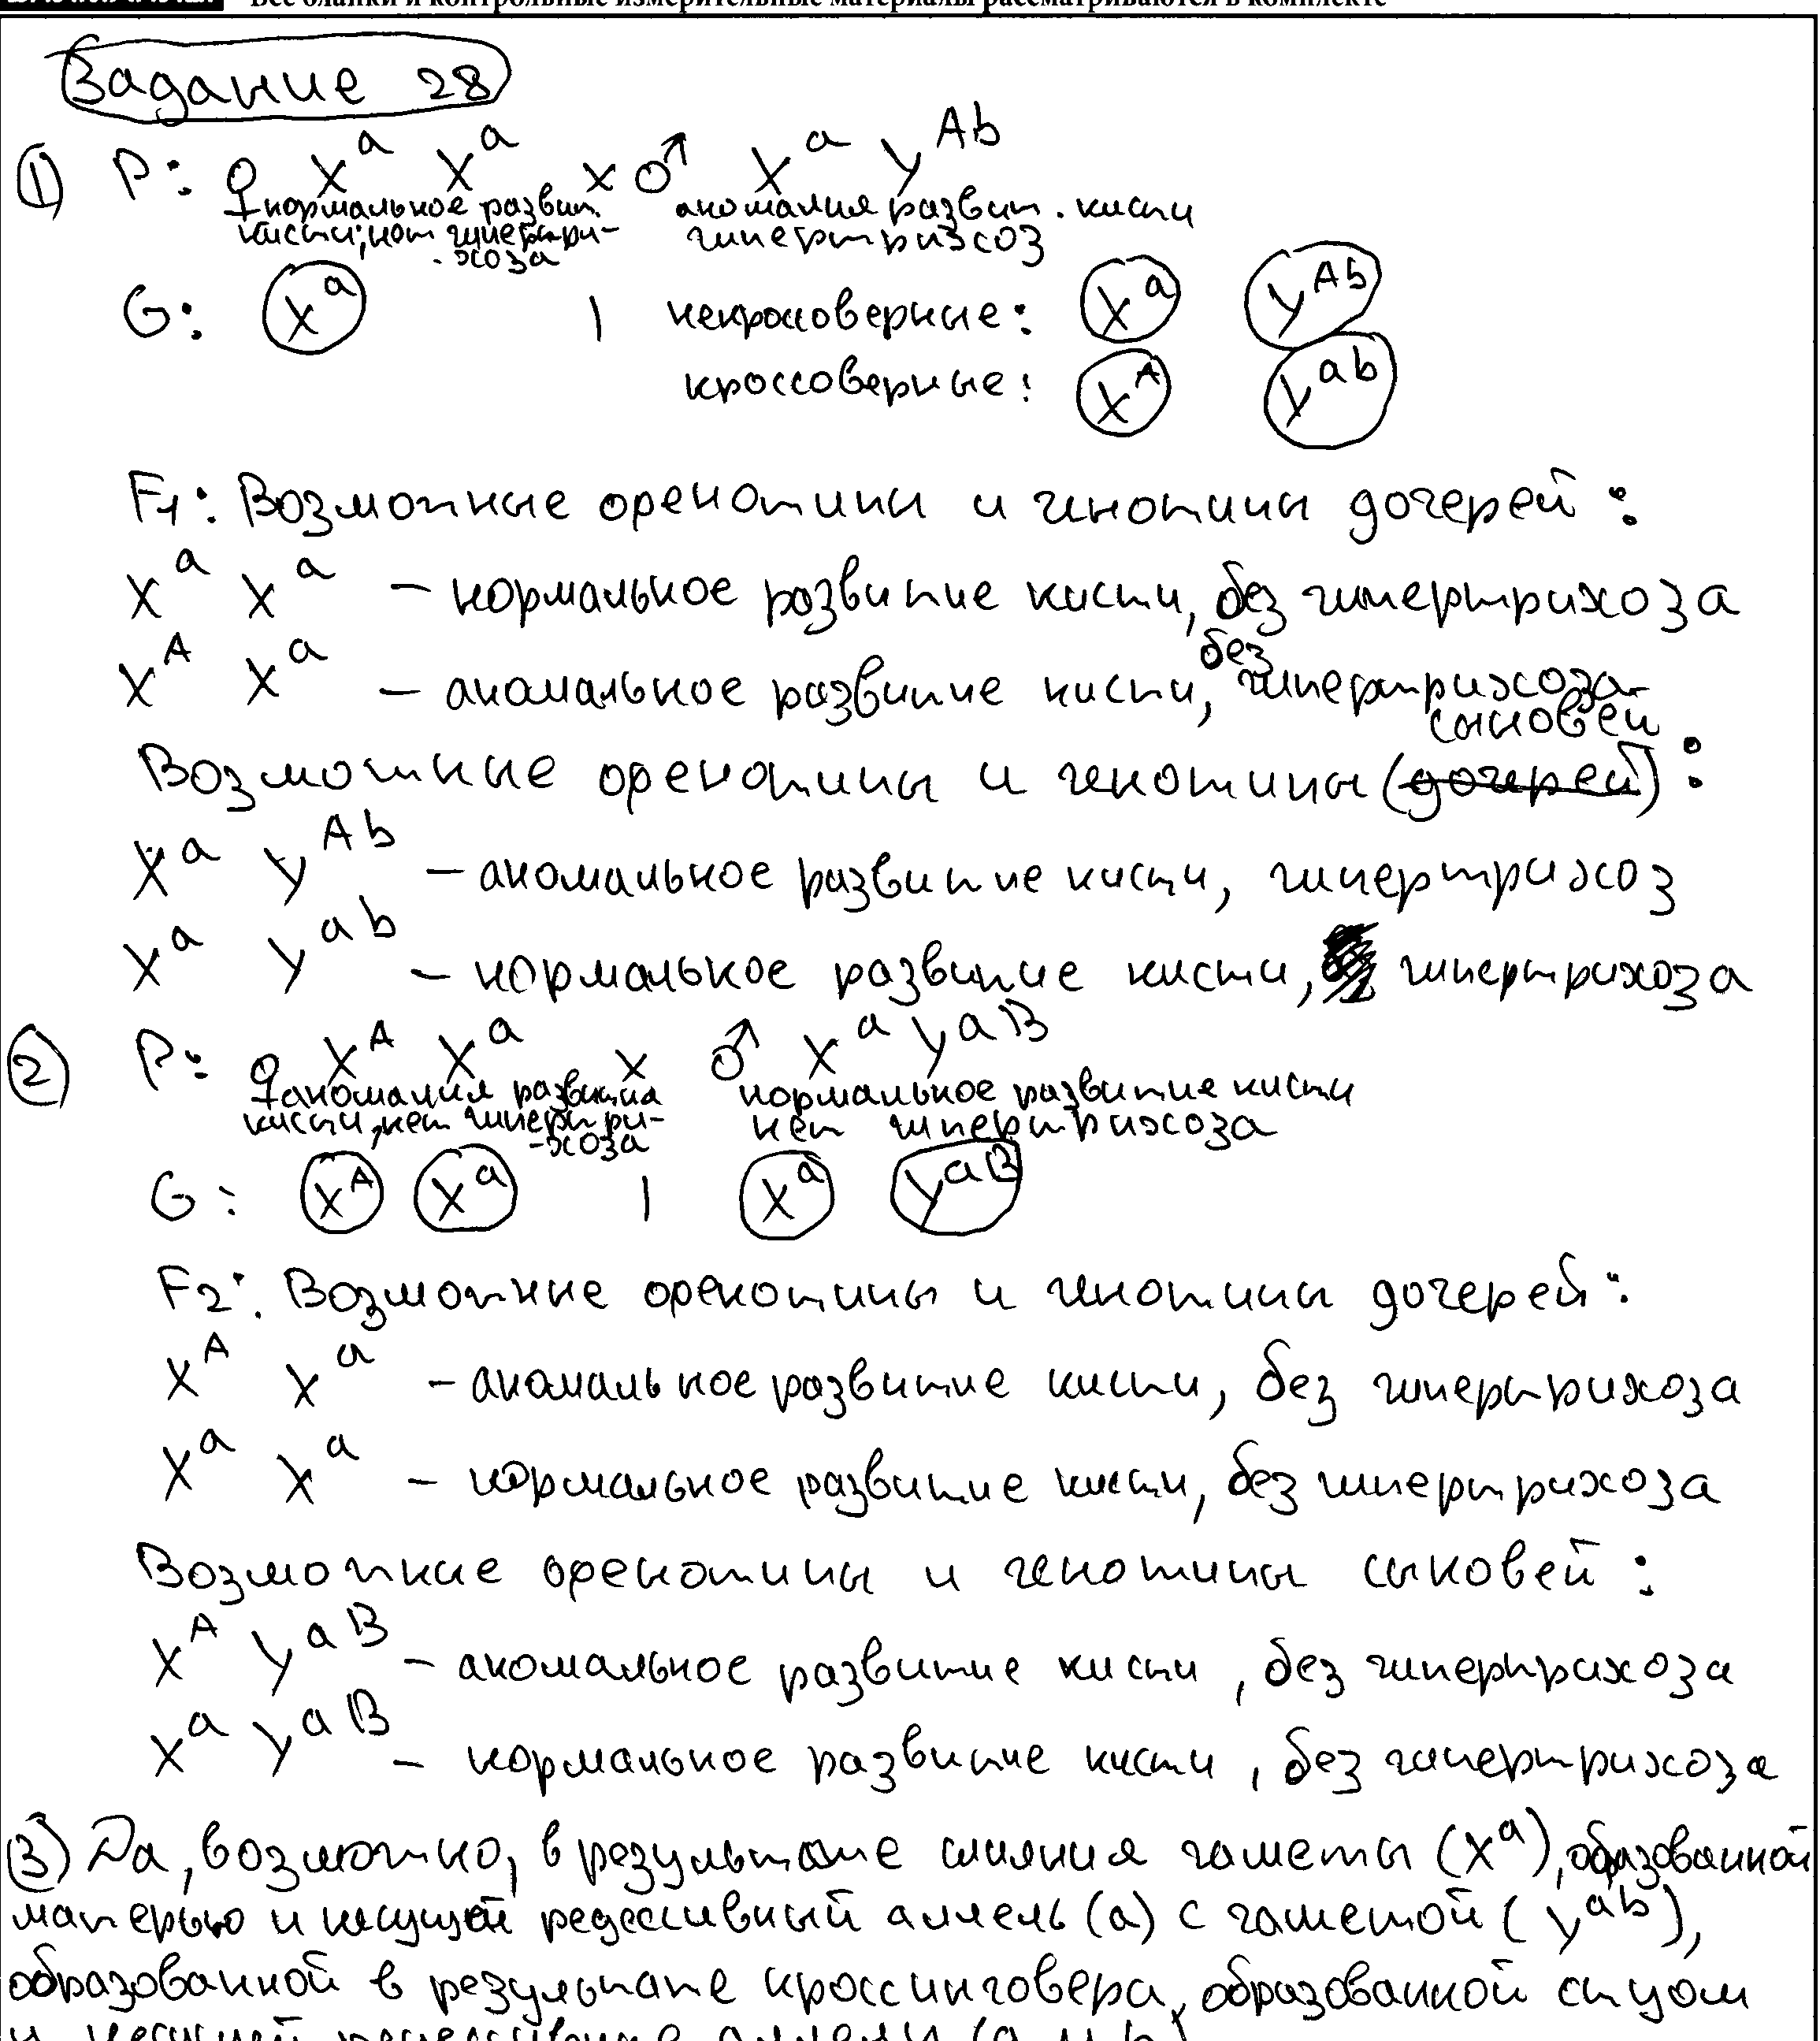 Все бланки и контрольные измерительные материалы рассматриваются в комплекте
Задание 28
① P: ♀ X^a X^a x ♂ X^a Y^Ab
нормальное развит. аномалия развит. кисти
кисти, нет гипертри- гипертрихоз
-хоза
G: X^a | некроссоверные: X^a Y^Ab
кроссоверные: X^A Y^ab
F1: Возможные фенотипы и генотипы дочерей:
X^a X^a – нормальное развитие кисти, без гипертрихоза
X^A X^a – аномальное развитие кисти, без гипертрихоза
Возможные фенотипы и генотипы (дочерей) сыновей:
X^a Y^Ab – аномальное развитие кисти, гипертрихоз
X^a Y^ab – нормальное развитие кисти, гипертрихоза
② P: ♀ X^A X^a x ♂ X^a Y^aB
аномалия развития нормальное развитие кисти
кисти, нет гипертри- нет гипертрихоза
-хоза
G: X^A X^a | X^a Y^aB
F2: Возможные фенотипы и генотипы дочерей:
X^A X^a – аномальное развитие кисти, без гипертрихоза
X^a X^a – нормальное развитие кисти, без гипертрихоза
Возможные фенотипы и генотипы сыновей:
X^A Y^aB – аномальное развитие кисти, без гипертрихоза
X^a Y^aB – нормальное развитие кисти, без гипертрихоза
③ Да, возможно, в результате слияния гаметы (X^a), образованной
матерью и несущей рецессивный аллель (a) с гаметой (Y^ab),
образованной в результате кроссинговера, образованной отцом
и несущей рецессивные аллели (a и b)